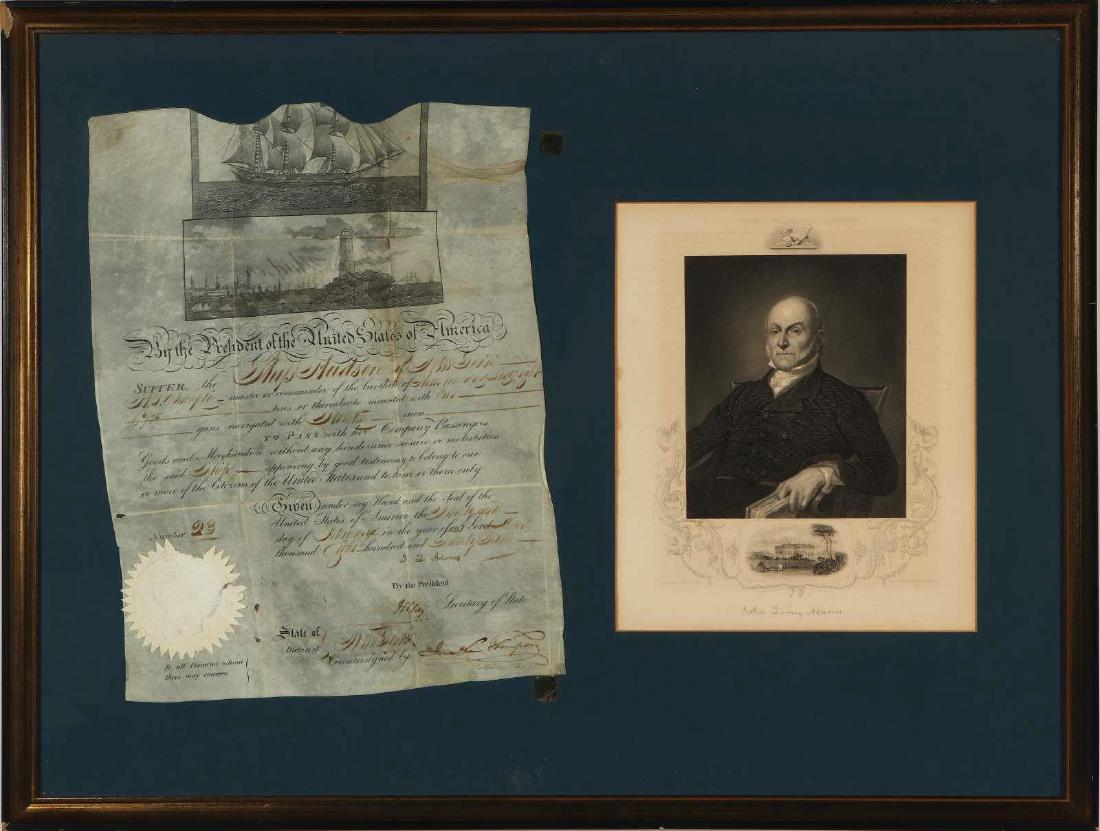 By the President of the United States of America
SUFFER the Ship Hudson of New York
master or commander of the burthen of Three hundred
tons or thereabouts mounted with
guns navigated with Twenty men
TO PASS with her Company Passengers
Goods and Merchandize without any hinderance seisure or molestation
the said Ship appearing by good testimony to belong to one
or more of the Citizens of the United States and to him or them only
Given under my Hand and the Seal of the
United States of America the
day of February in the year of our Lord One
thousand Eight hundred and Twenty
J. Q. Adams
Number 28
By the President
H Clay Secretary of State
State of
District of New York
Countersigned by Jonathan Thompson
To all Persons whom
these may concern
John Quincy Adams